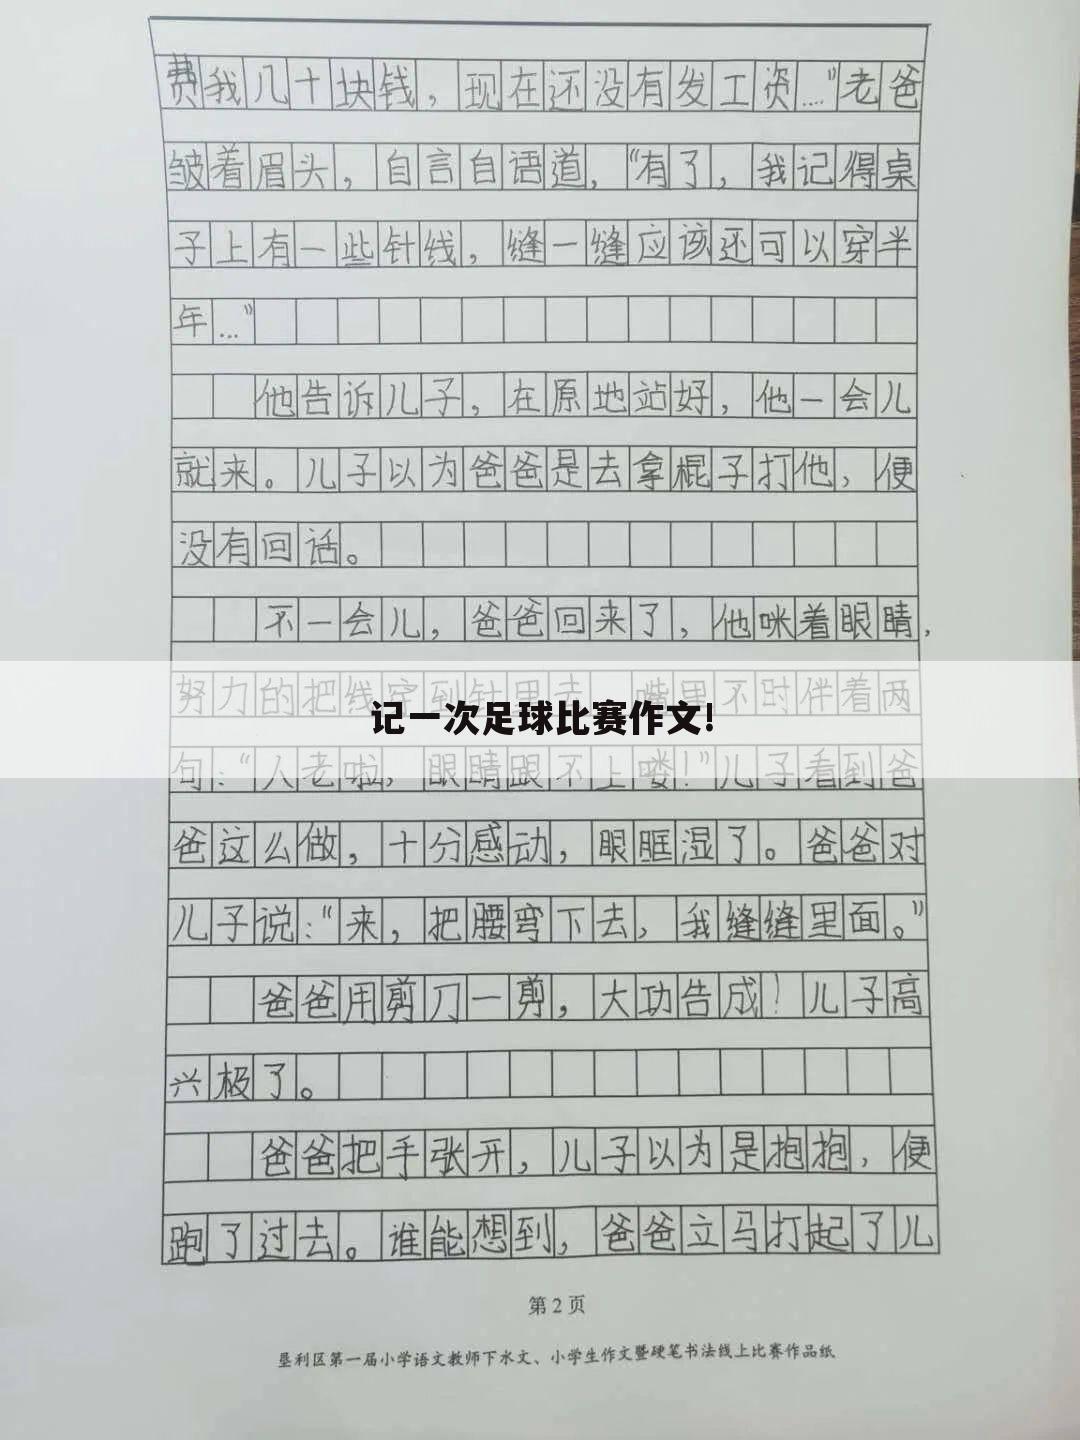 费我几十块钱，现在还没有发工资…."老爸
皱着眉头，自言自语道，"有了，我记得桌
子上有一些针线，缝一缝应该还可以穿半
年…"
他告诉儿子，在原地站好，他一会儿
就来。儿子以为爸爸是去拿棍子打他，便
没有回话。
不一会儿，爸爸回来了，他咪着眼睛，
努力的把线穿到针里去，嘴里不时伴着两
记一次足球比赛作文!
句："人老啦，眼睛跟不上喽！"儿子看到爸
爸这么做，十分感动，眼眶湿了。爸爸对
儿子说："来，把腰弯下去，我缝缝里面。"
爸爸用剪刀一剪，大功告成！儿子高
兴极了。
爸爸把手张开，儿子以为是抱抱，便
跑了过去。谁能想到，爸爸立马打起了儿
第2页
垦利区第一届小学语文教师下水文、小学生作文暨硬笔书法线上比赛作品纸